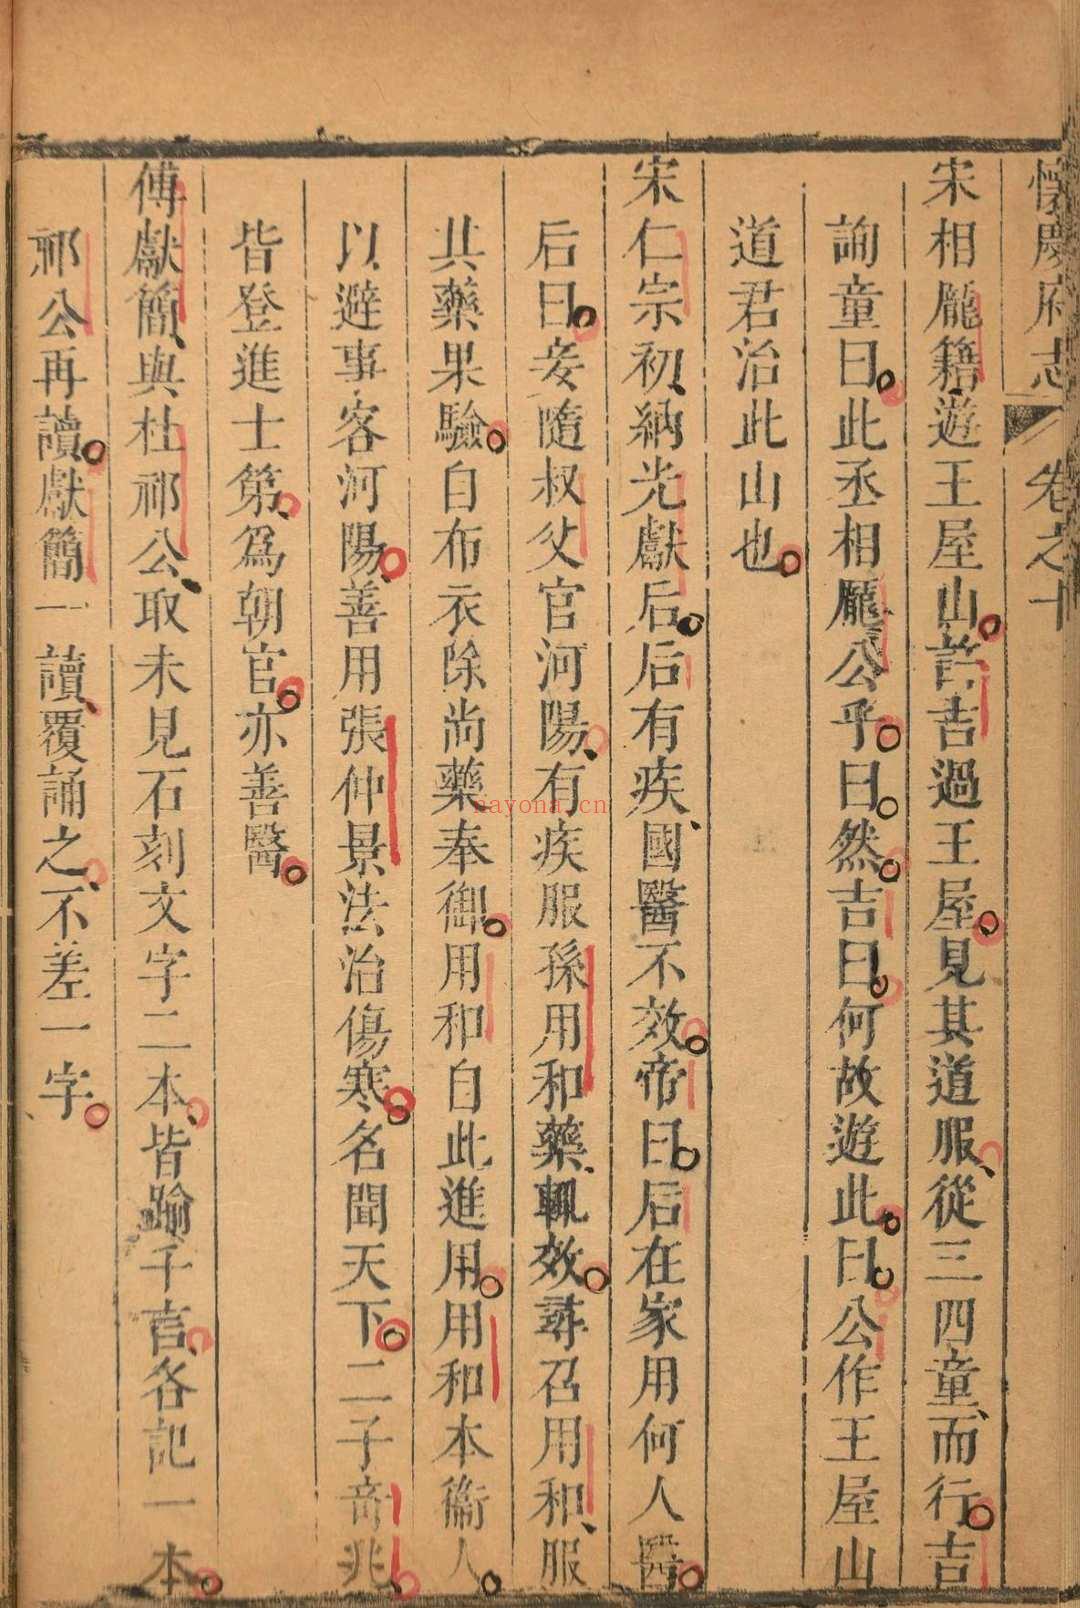 懷慶府志 卷之十
宋相龐籍遊王屋山許吉過王屋見其道服從三四童而行吉
詢童曰此丞相龐公乎曰然吉曰何故遊此曰公作王屋山
道君治此山也
宋仁宗初納光獻后后有疾國醫不效帝曰后在家用何人醫
后曰妾隨叔父官河陽有疾服孫用和藥輒效尋召用和服
其藥果驗自布衣除尚藥奉御用和自此進用用和本衞人
以避事客河陽善用張仲景法治傷寒名聞天下二子奇兆
皆登進士第為朝官亦善醫
傅獻簡與杜祁公取未見石刻文字二本皆踰千言各記一本
祁公再讀獻簡一讀覆誦之不差一字
nayona.cn